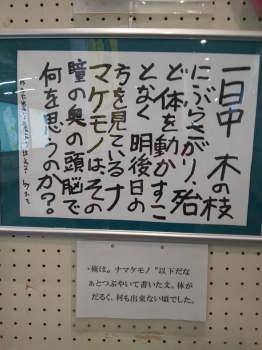 一日中 木の枝
にぶらさがり、殆
ど体を動かすこ
となく 明後日の
方を見ているナ
マケモノは、その
瞳の奥の頭脳で
何を思うのか？
俺は〝ナマケモノ〟以下だな
ぁとつぶやいて書いた文。体が
だるく、何も出来ない頃でした。